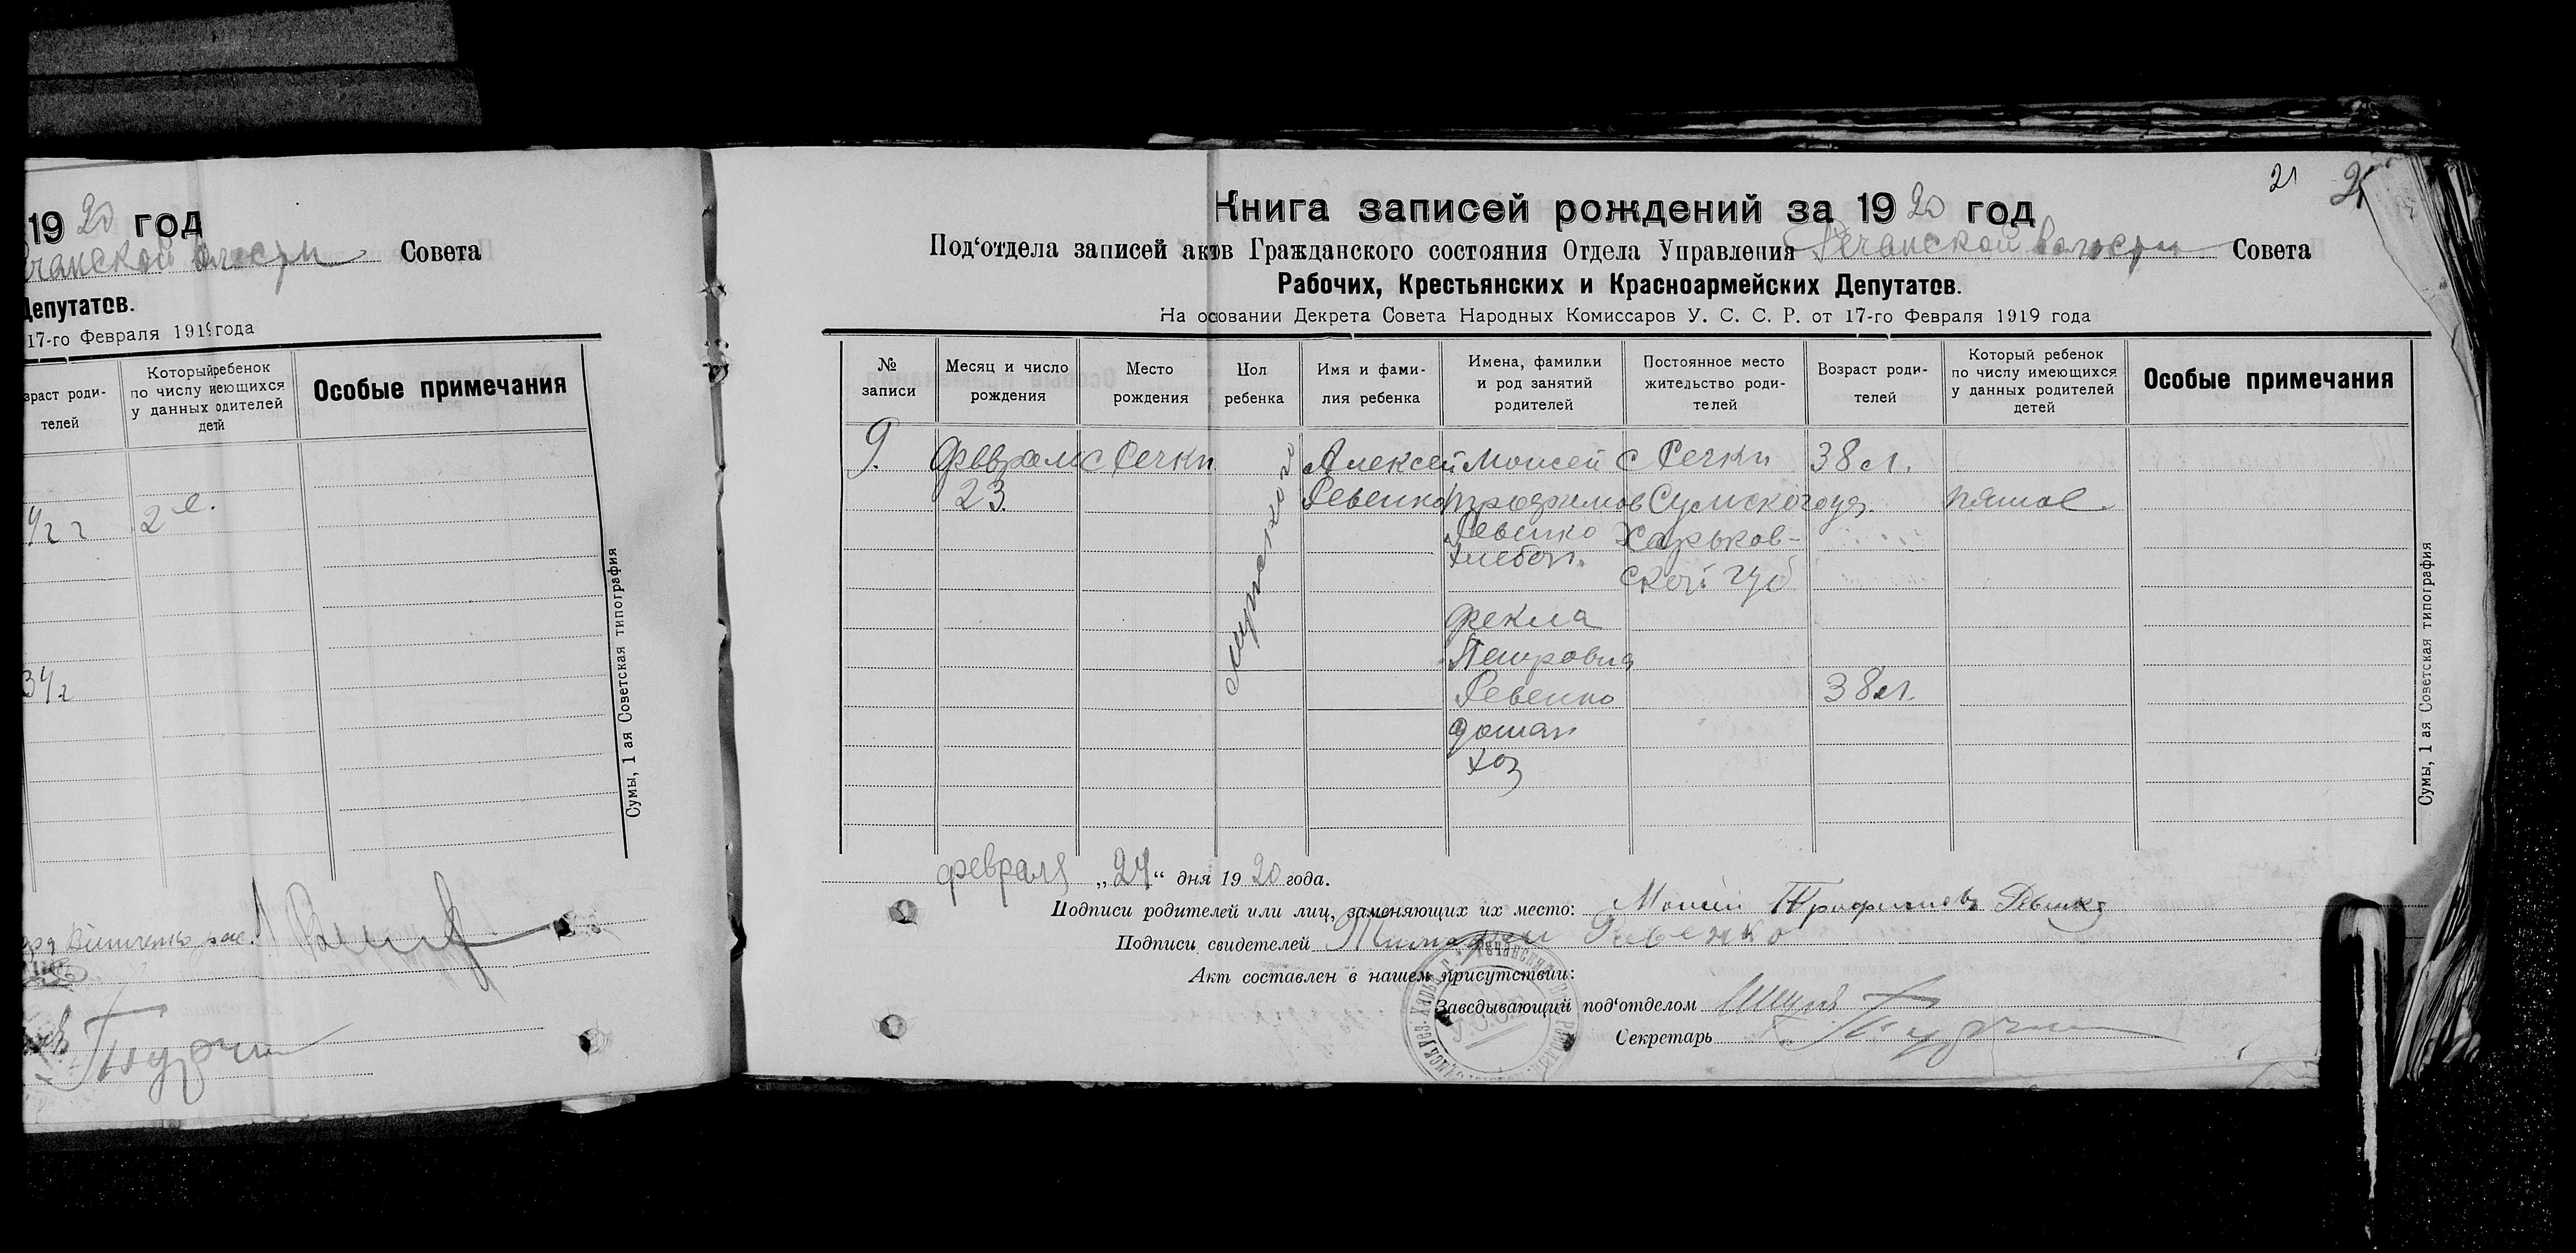 1920 год
Речанской волости Совета
Депутатов.
17-го Февраля 1919 года
раст роди-
телей
Который ребенок
по числу имеющихся
у данных родителей
детей
Особые примечания
2 е.
34 г
Сумы, 1 ая Советская типография
21
Книга записей рождений за 1920 год
Под‘отдела записей актов Гражданского состояния Отдела Управления Речанской волости Совета
Рабочих, Крестьянских и Красноармейских Депутатов.
На основании Декрета Совета Народных Комиссаров У. С. С. Р. от 17-го Февраля 1919 года
№
записи
Месяц и число
рождения
Место
рождения
Пол
ребенка
Имя и фами-
лия ребенка
Имена, фамилии
и род занятий
родителей
Постоянное место
жительство роди-
телей
Возраст роди-
телей
Который ребенок
по числу имеющихся
у данных родителей
детей
Особые примечания
9.
Февраля
23
с Речки
Алексей
Ревенко
Моисей
Трофимов
Ревенко
хлебоп.
Фекла
Петровна
Ревенко
домаш
хоз
с Речки
Сумского уез.
Харьков-
ской губ
38 л.
38 л.
пятое
Сумы, 1 ая Советская типография
февраля „24“ дня 1920 года.
Подписи родителей или лиц, заменяющих их место: Моисей Трофимовъ Ревенко
Подписи свидетелей Тимофей Ревенко
Акт составлен в нашем присутствии:
Заведывающий под‘отделом
Секретарь